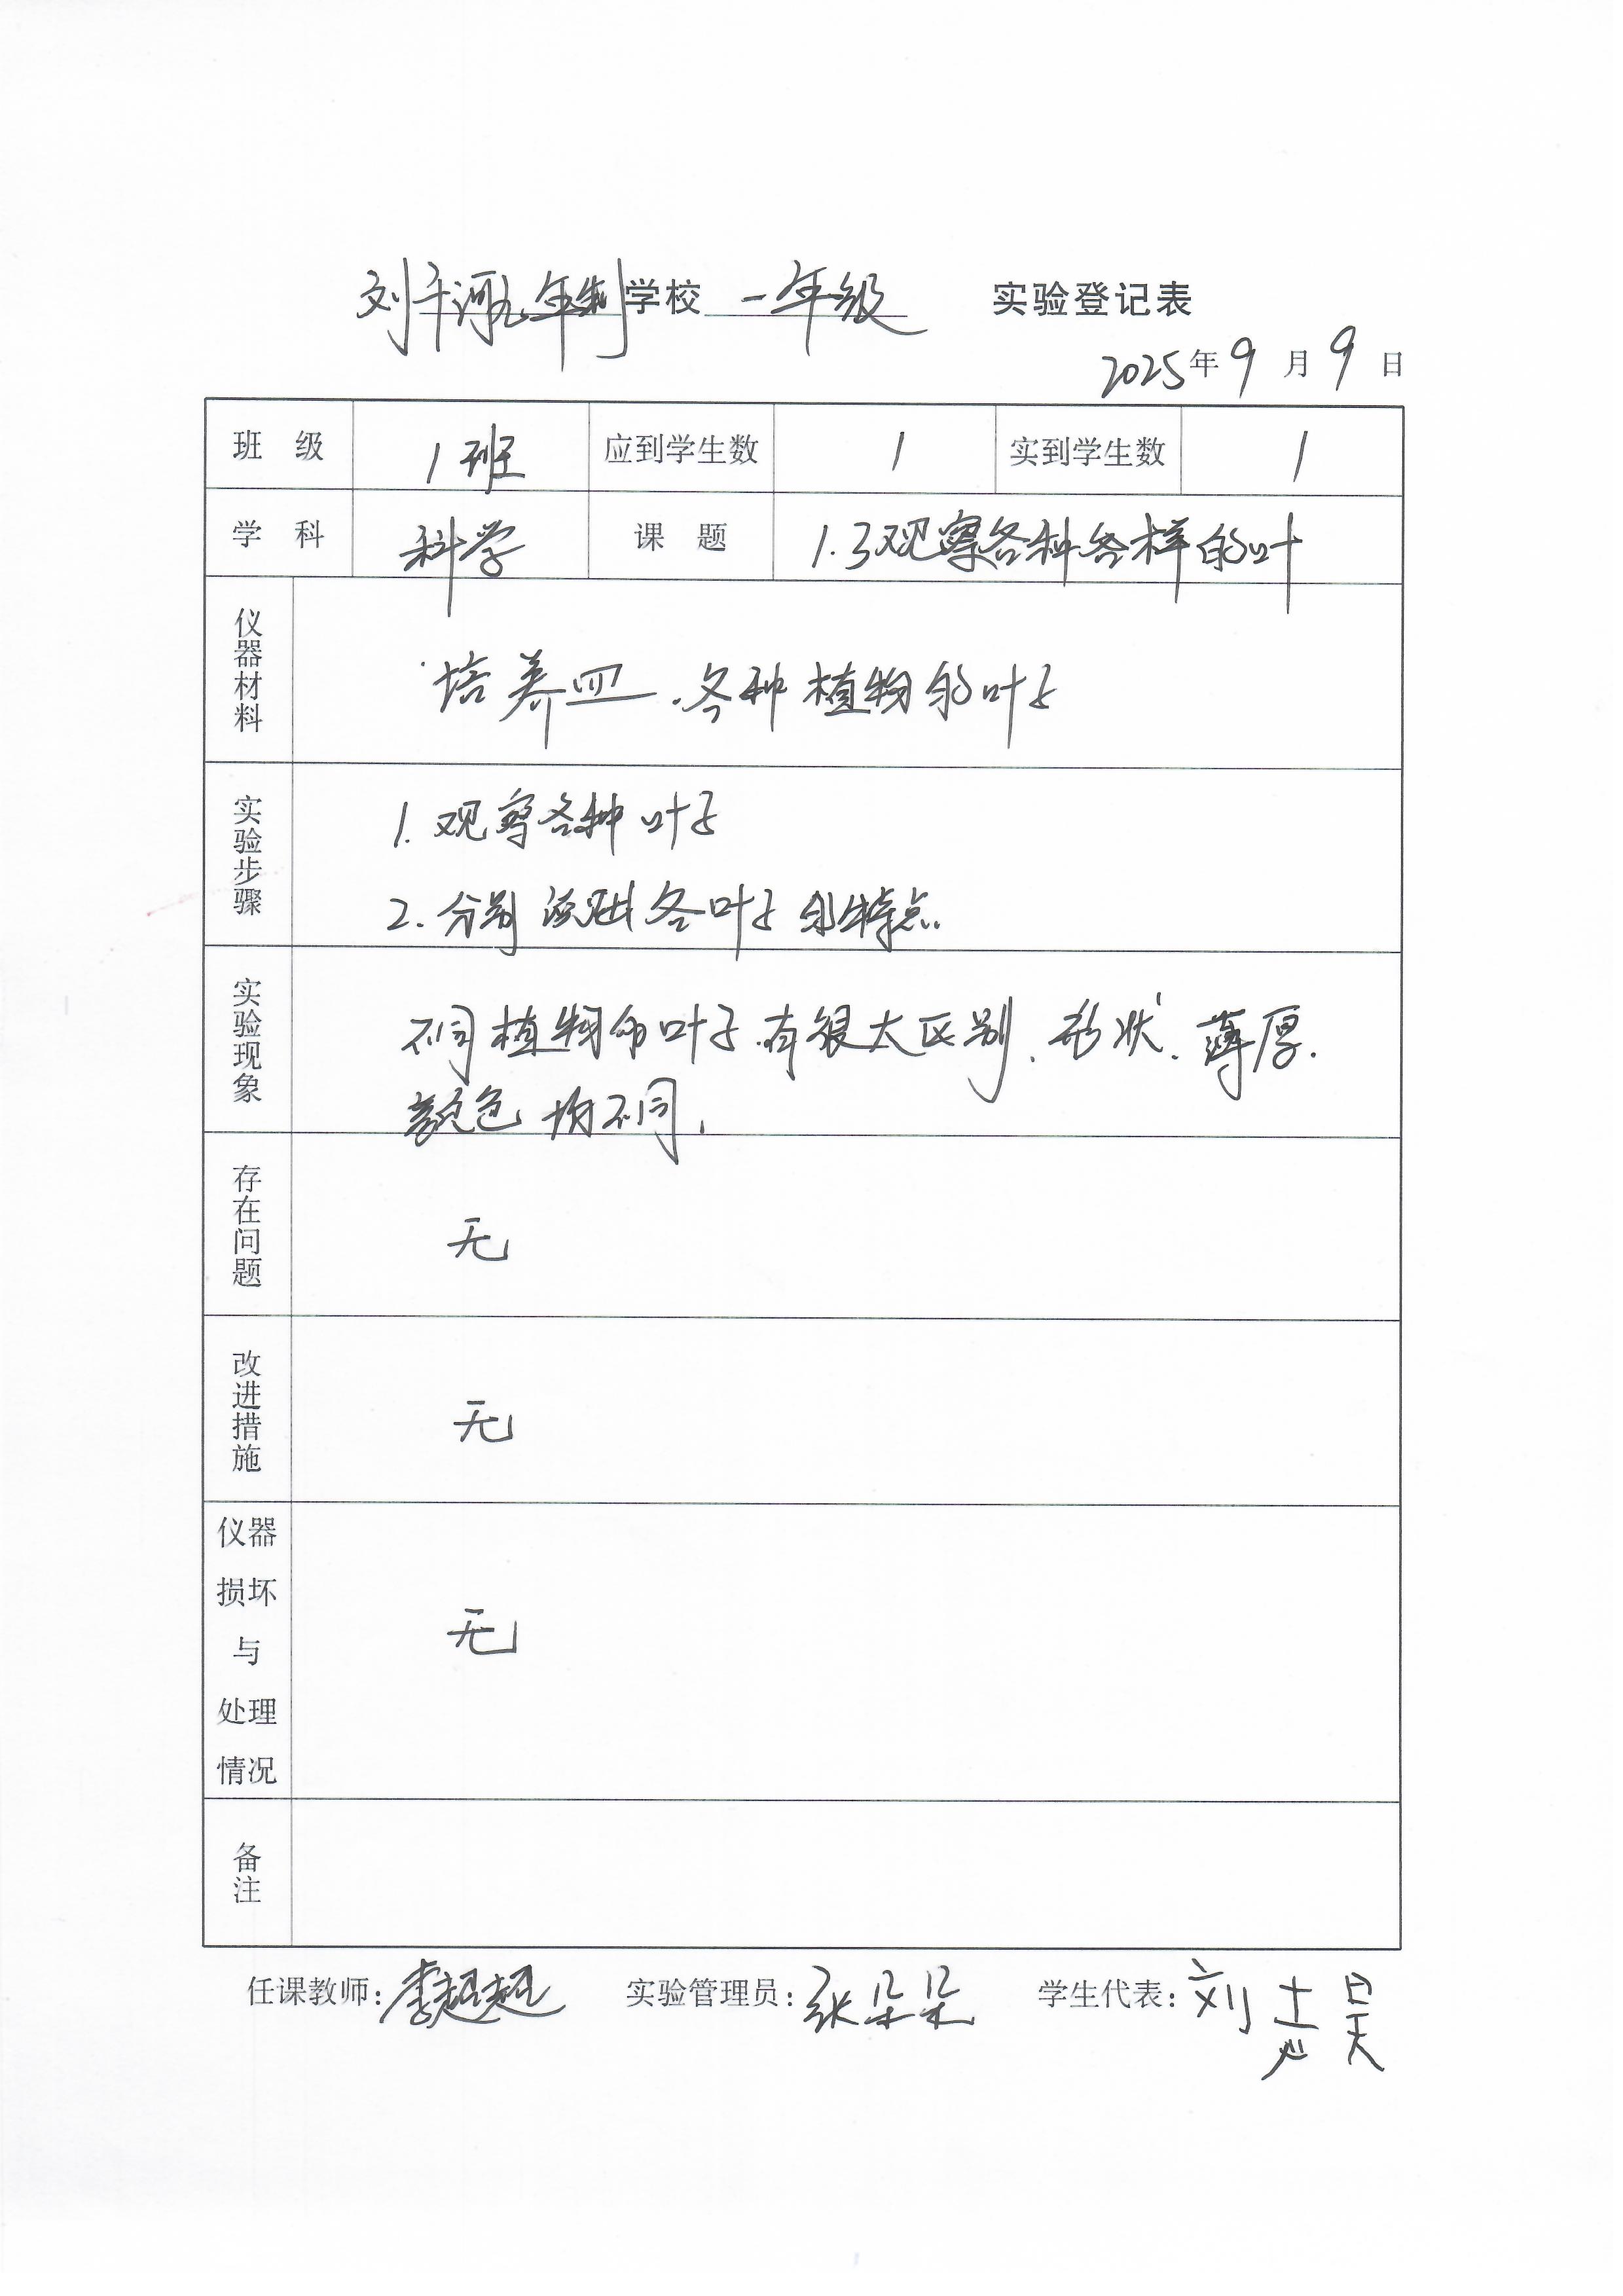 刘千河九年制学校 一年级 实验登记表
2025年9月9日
班 级 1班 应到学生数 1 实到学生数 1
学 科 科学 课 题 1.3观察各种各样的叶
仪器材料 培养皿、各种植物的叶子
实验步骤 1.观察各种叶子
2.分别说出各叶子的特点.
实验现象 不同植物的叶子有很大区别、形状、薄厚.
颜色均不同.
存在问题 无
改进措施 无
仪器
损坏
与 无
处理
情况
备注
任课教师:李超超 实验管理员:张朵朵 学生代表:刘志昊